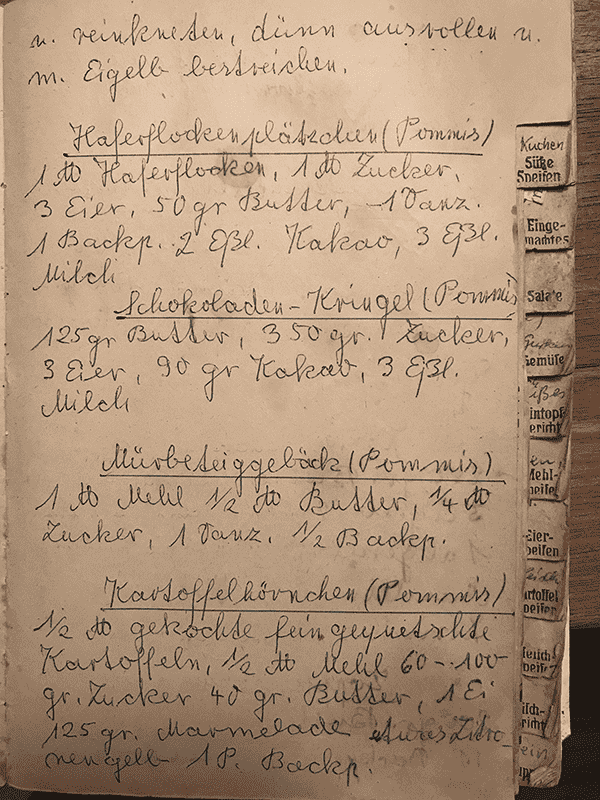 u. reinkneten, dünn ausrollen u.
m. Eigelb bestreichen.
Haferflockenplätzchen (Pommis)
1 ℔ Haferflocken, 1 ℔ Zucker,
3 Eier, 50 gr Butter, 1 Vanz.
1 Backp. 2 Eßl. Kakao, 3 Eßl.
Milch
Schokoladen-Kringel (Pommis
125 gr Butter, 350 gr. Zucker,
3 Eier, 90 gr Kakao, 3 Eßl.
Milch
Mürbeteiggebäck (Pommis)
1 ℔ Mehl 1/2 ℔ Butter, 1/4 ℔
Zucker, 1 Vanz. 1/2 Backp.
Kartoffelhörnchen (Pommis)
1/2 ℔ gekochte feingequetschte
Kartoffeln, 1/2 ℔ Mehl 60-100
gr. Zucker 40 gr. Butter, 1 Ei
125 gr. Marmelade etwas Zitro-
nengelb 1 P. Backp.
Kuchen
Süße
Speisen
Einge-
machtes
Salate
Gemüse
Eintopf
ericht
Mehl-
peisen
Eier-
peisen
artoffel
peisen